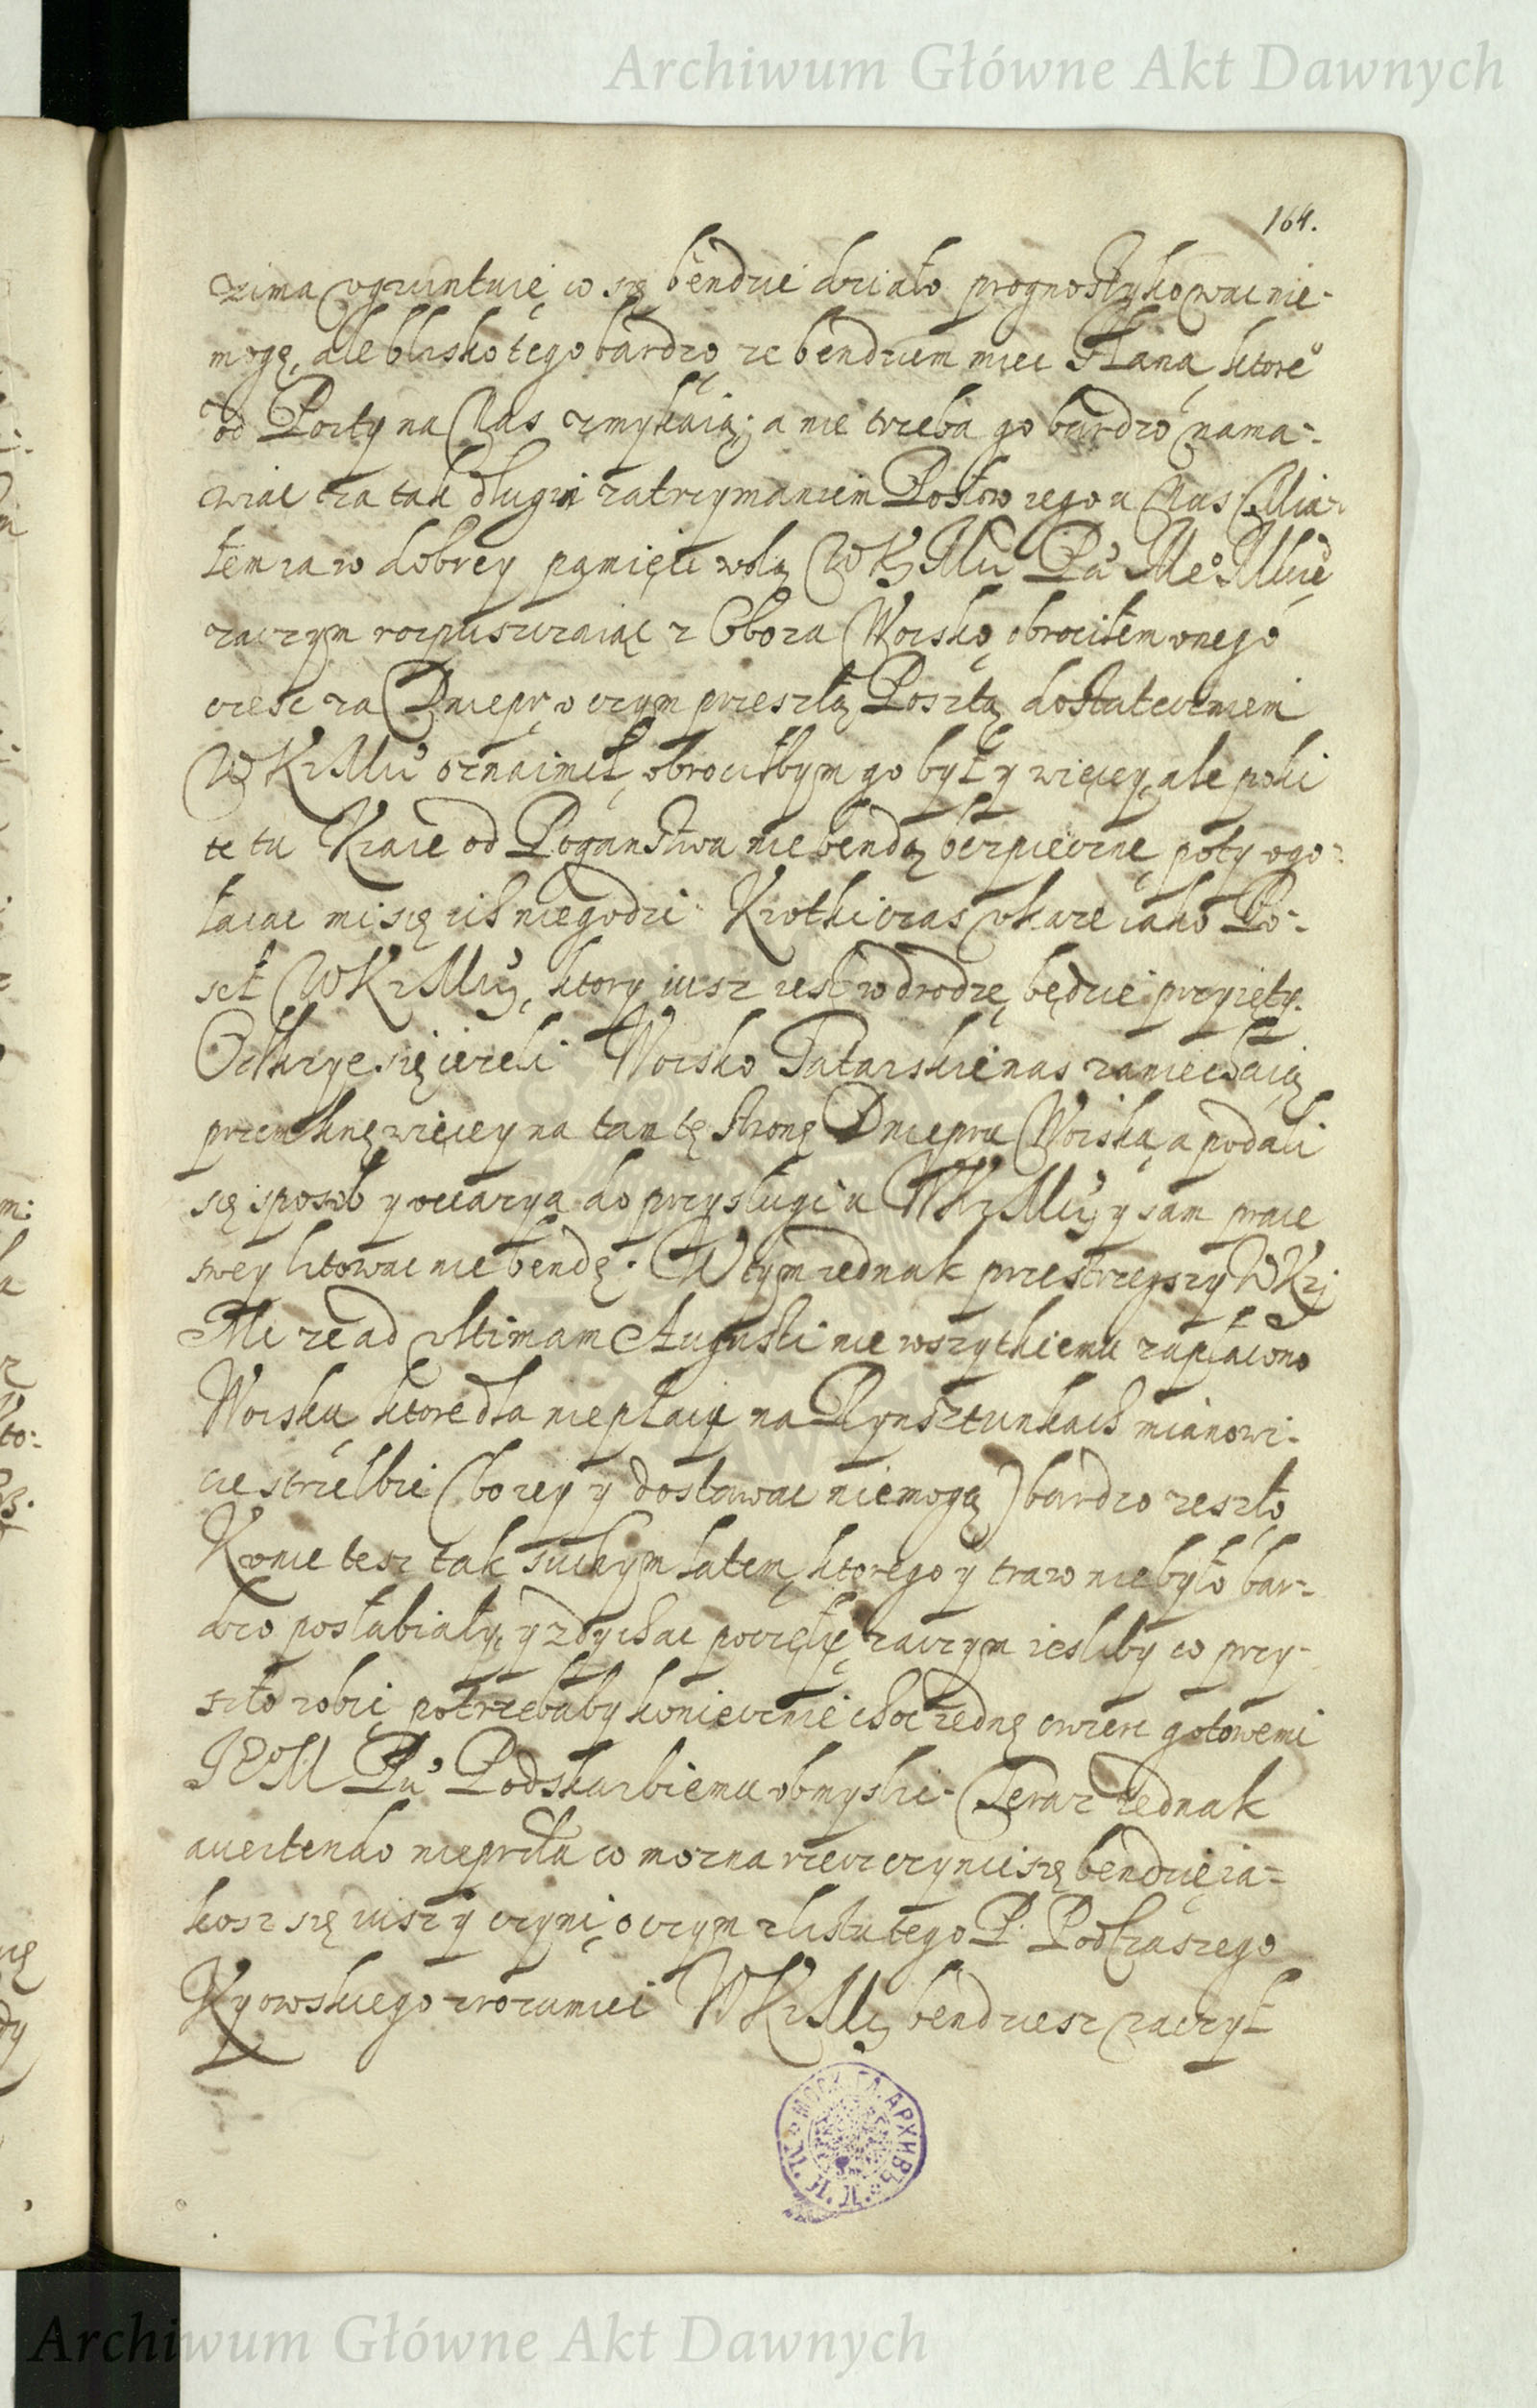 Archiwum Główne Akt Dawnych
164.
zima ugruntuie, co się bendzie działo prognostykowac nie-
mogę, ale blisko tego bardzo ze bendziem miec Hana, ktoreº
od Porty na Nas zmykaią; a nie trzeba go bardzo nama-
wiac za tak długim zatrzymaniem Posłow iego u Nas. Mia-
łem ia w dobrey pamięci wolą WKMci Pa Meº Mciº
zaczym rozpuszczaiąc z Oboza Woisko, obrociłem onego
czesc za Dniepr, o czym przeszłą Posztą dostateczniem
WKrMci oznaimił, obrociłbym go był y więcey, ale poki
te tu Kraie od Poganstwa nie bendą bezpieczne, poty ogo-
łacac mi się ich niegodzi. Krotki czas ukaze iako Po-
seł WKrMci, ktory iusz iest w drodze, będzie przyięty.
Odkryie się iezeli Woisko Tatarskie nas zaniechaią
przemknę więcey na tamtę stronę Dniepru Woiska, a podali
się sposob y occazya do przysługi u WKrMci y sam prace
swey litowac nie bendę. W tym iednak przestrzegszy WKrj
Mc ze ad ultimam Augusti nie wszytkiemu zapłacono
Woisku, ktore dla niepłacy na Rynsztunkach mianowi-
cie strzelbie (bo iey y dostawac niemogą) bardzo zeszło
Konie tesz tak suchym latem, ktorego y traw niebyło bar-
dzo posłabiały, y zdychac poczęły, zaczym iesliby co przy-
szło robic, potrzebaby koniecznie choc iednę cwierc gotowemi
JEM Pu Podskarbiemu obmyslic. Teraz iednak
auertendo nieprzla co mozna rzecz czynic się bendzie, ia-
kosz się iusz y czyni, o czym z listu tego P. Podczaszego
Kyowskiego zrozumiec WKrMc bendziesz raczył
МОСК. ГЛ. АРХИВЪ
Archiwum Główne Akt Dawnych